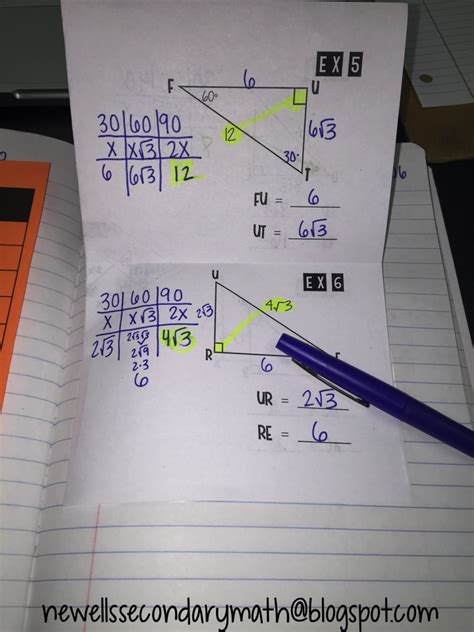 EX 5
F 6 U
60°
12 6√3
30°
T
30 | 60 | 90
x | x√3 | 2x
6 | 6√3 | 12
FU = 6
UT = 6√3
EX 6
U
30 | 60 | 90
x | x√3 | 2x
2√3 | 2√3√3 | 4√3
2√9
2·3
6
2√3 4√3
R 6
UR = 2√3
RE = 6
newellssecondarymath@blogspot.com